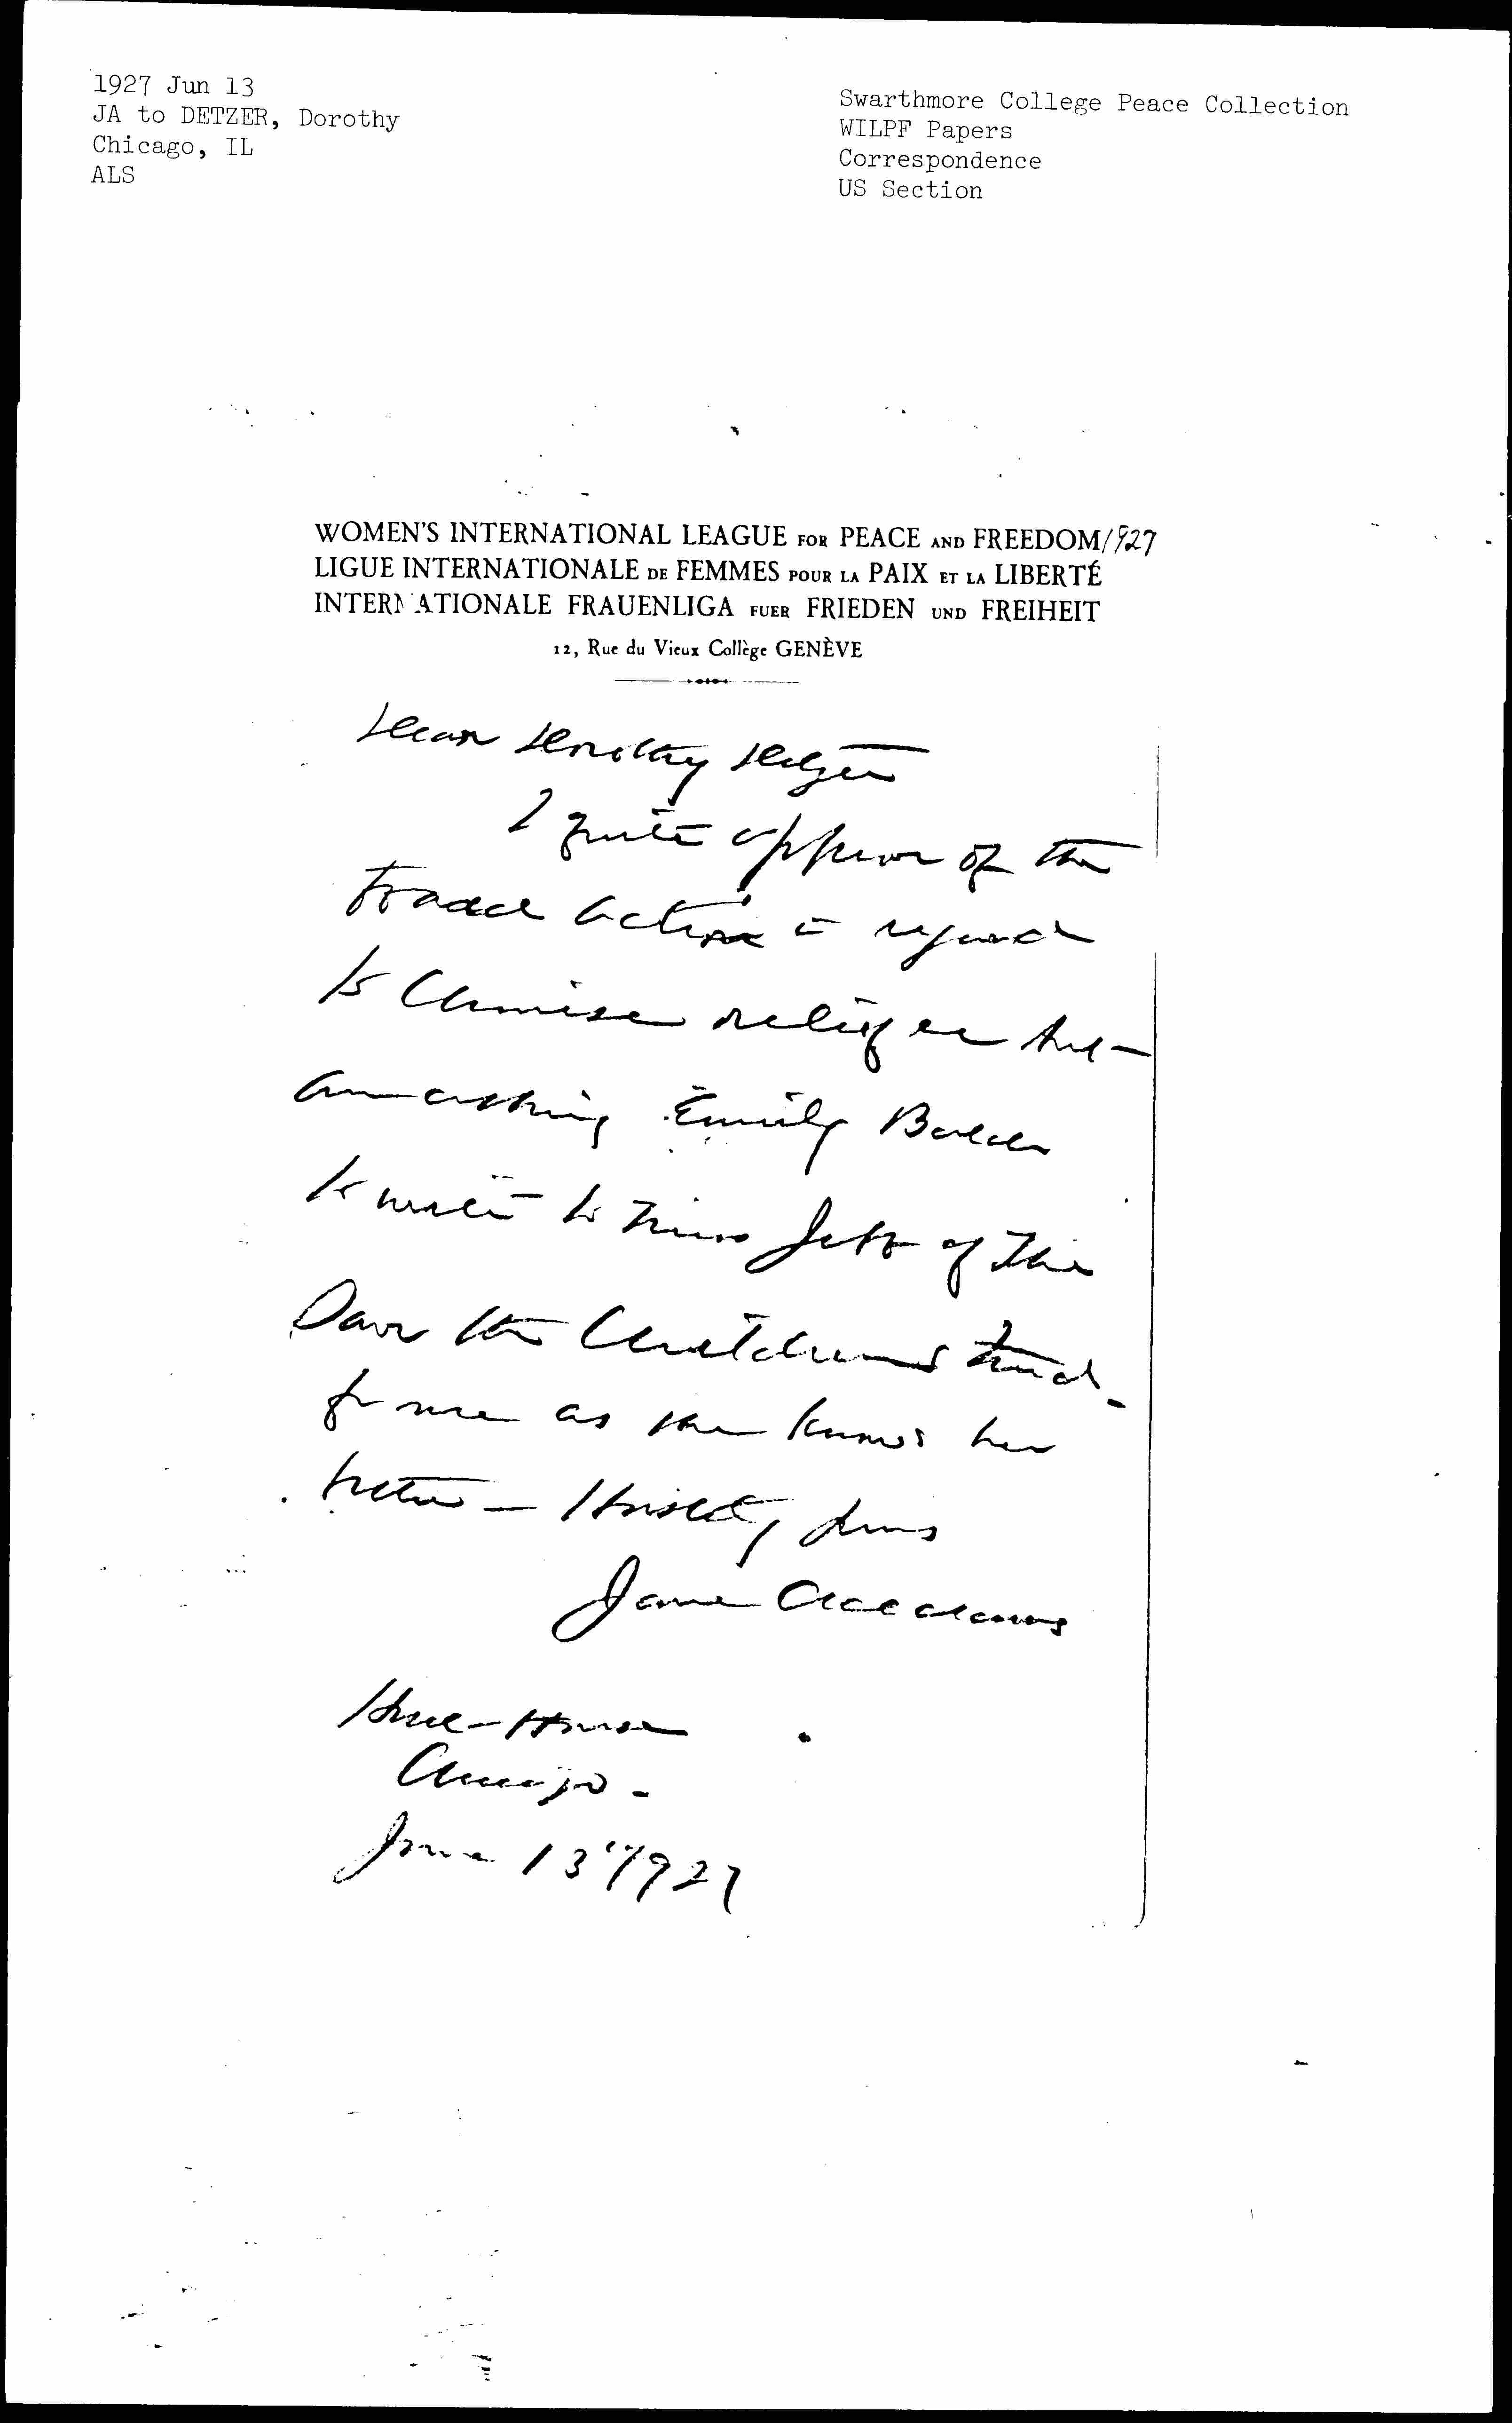 1927 Jun 13
JA to DETZER, Dorothy
Chicago, IL
ALS
Swarthmore College Peace Collection
WILPF Papers
Correspondence
US Section
WOMEN'S INTERNATIONAL LEAGUE FOR PEACE AND FREEDOM/927
LIGUE INTERNATIONALE DE FEMMES POUR LA PAIX ET LA LIBERTÉ
INTERNATIONALE FRAUENLIGA FUER FRIEDEN UND FREIHEIT
12, Rue du Vieux Collège GENÈVE
Dear Dorothy Detzer
I quite approve of the
Board action in regard
to Chinese relief and
am asking Emily Balch
to write to Miss Jebb of The
Save the Children's Fund
for me as she knows her
better — Hastily yours
Jane Addams
Hull-House
Chicago -
June 13" 1927